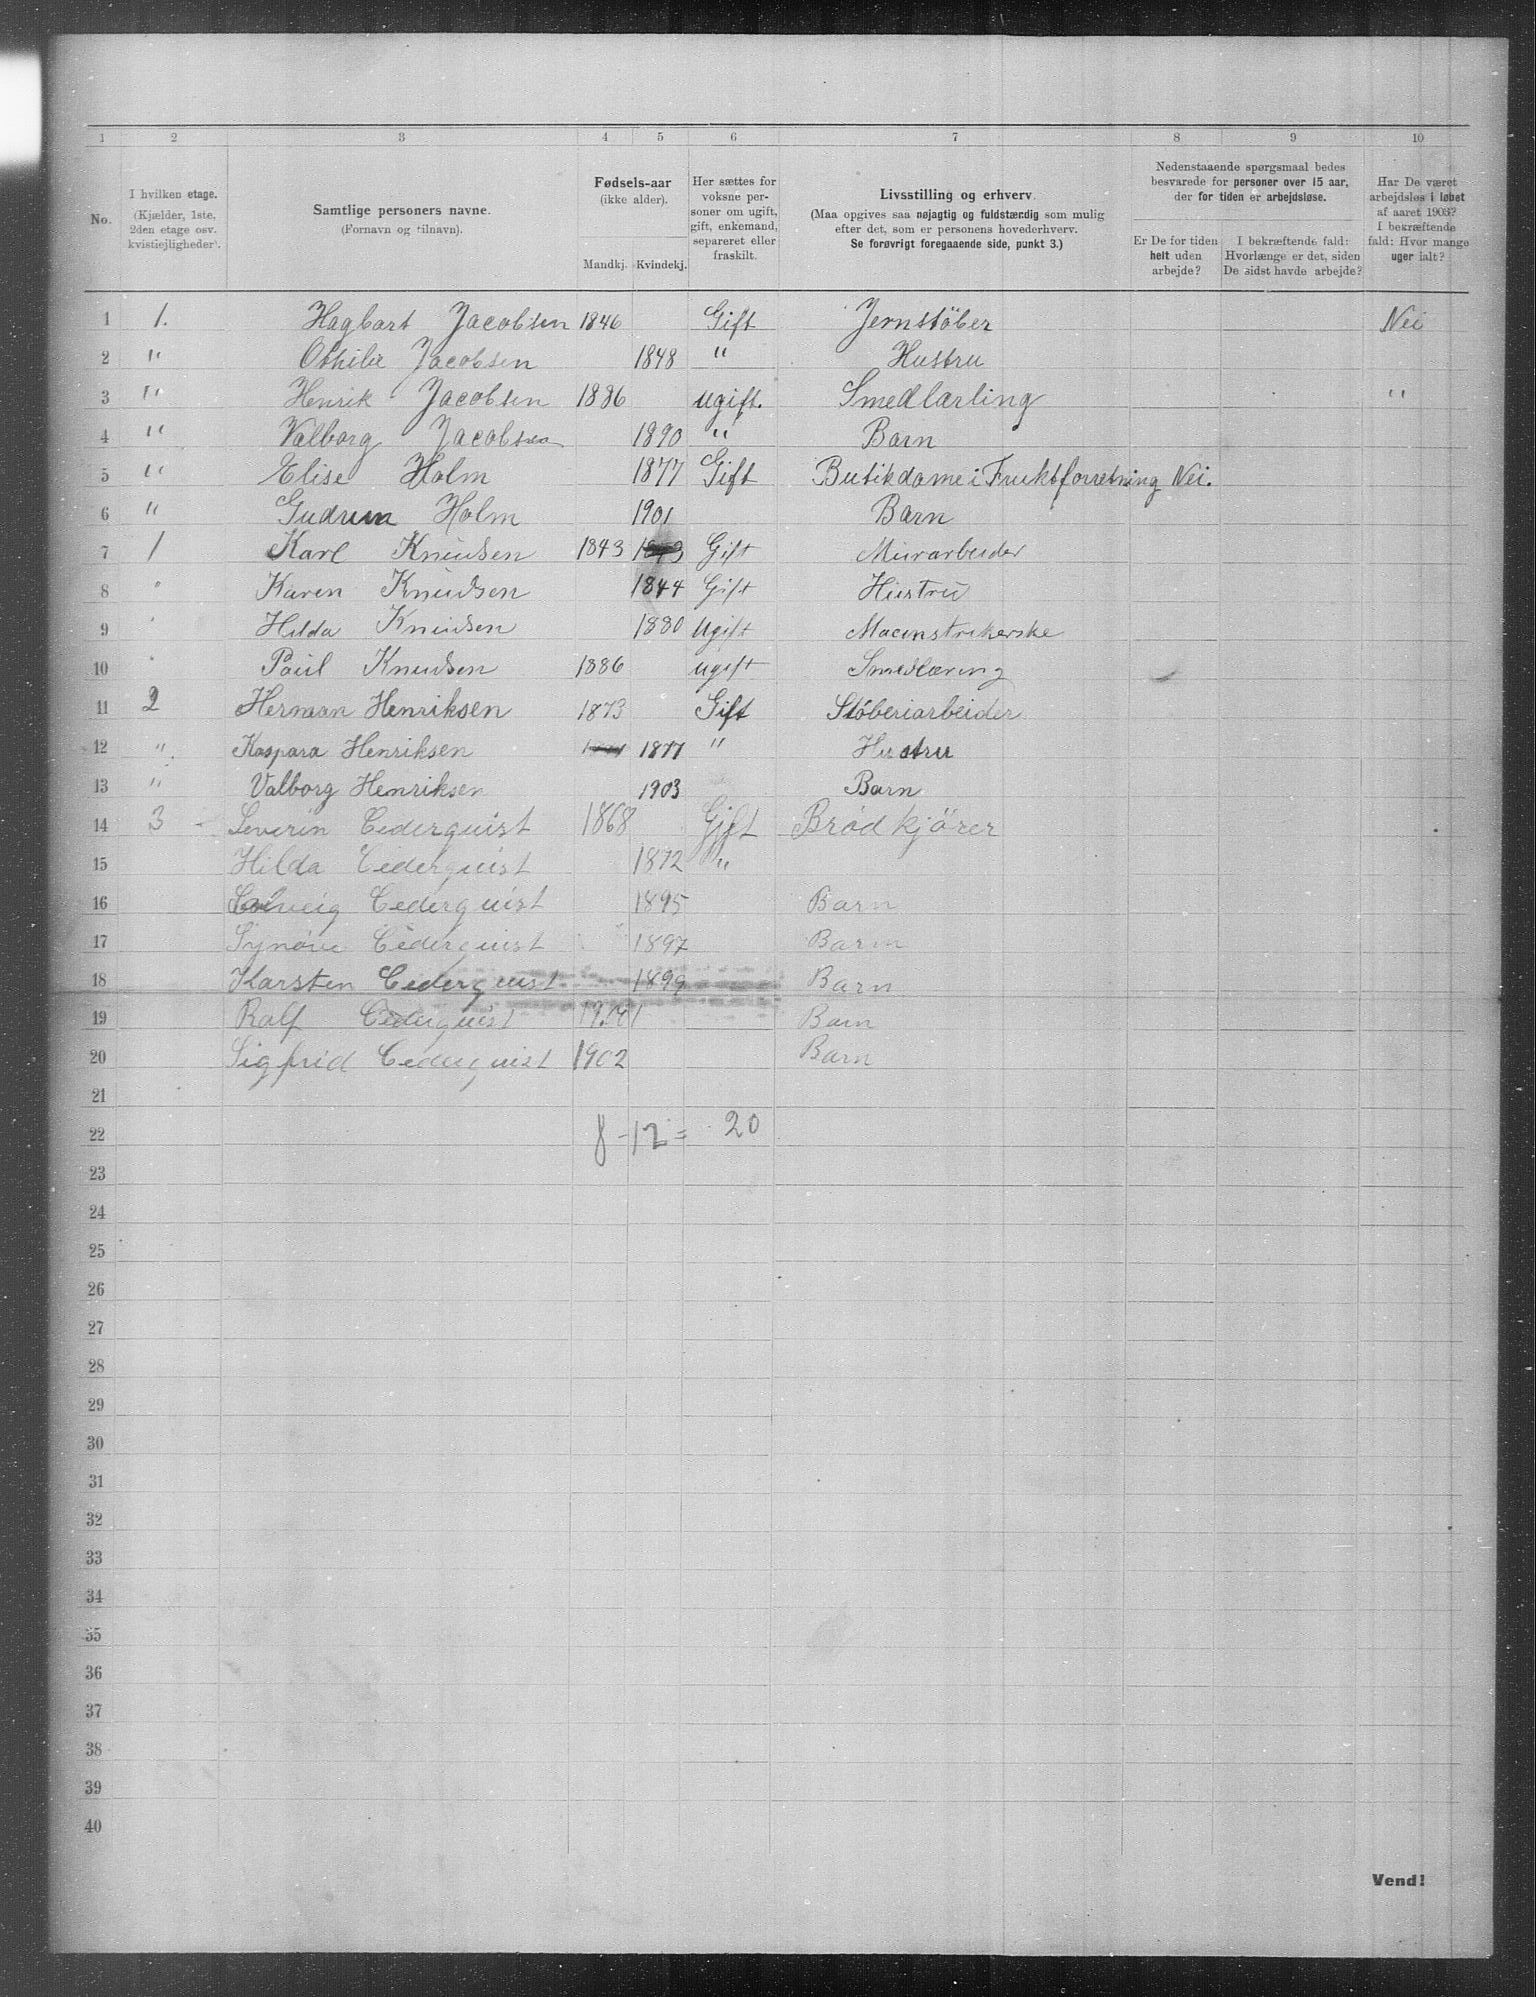 1 2 3 4 5 6 7 8 9 10
No.
I hvilken etage.
(Kjælder, 1ste,
2den etage osv.
kvistlejligheder).
Samtlige personers navne.
(Fornavn og tilnavn).
Fødsels-aar
(ikke alder).
Mandkj. Kvindekj.
Her sættes for
voksne per-
soner om ugift,
gift, enkemand,
separeret eller
fraskilt.
Livsstilling og erhverv.
(Maa opgives saa nøjagtig og fuldstærdig som mulig
efter det, som er personens hovederhverv.
Se forøvrigt foregaaende side, punkt 3.)
Nedenstaaende spørgsmaal bedes
besvarede for personer over 15 aar,
der for tiden er arbejdsløse.
Er De for tiden
helt uden
arbejde?
I bekræftende fald:
Hvorlænge er det, siden
De sidst havde arbejde?
Har De været
arbejdsløs i løbet
af aaret 1903?
I bekræftende
fald: Hvor mange
uger ialt?
1 1. Hagbart Jacobsen 1846 Gift Jernstöber Nei
2 " Othilie Jacobsen 1848 " Hustru
3 " Henrik Jacobsen 1886 ugift. Smedlærling "
4 " Valborg Jacobsen 1890 " Barn
5 " Elise Holm 1877 Gift Butikdame i Fruktforretning Nei.
6 " Gudrun Holm 1901 Barn
7 1 Karl Knudsen 1843 Gift Murarbeider
8 " Karen Knudsen 1844 Gift Hustru
9 Hilda Knudsen 1880 Ugift Macinstrikerske
10 Paul Knudsen 1886 ugift Smedlæring
11 2 Herman Henriksen 1873 Gift Stöberiarbeider
12 " Kaspara Henriksen 1877 " Hustru
13 " Valborg Henriksen 1903 Barn
14 3 - Severin Cederquist 1868 Gift Brödkjörer
15 Hilda Cederquist 1872 "
16 Solveig Cederquist 1895 Barn
17 Synöve Cederquist 1897 Barn
18 Karsten Cederquist 1899 Barn
19 Ralf Cederquist Barn
20 Sigfrid Cederquist 1902 Barn
21
22 8 - 12 = 20
23
24
25
26
27
28
29
30
31
32
33
34
35
36
37
38
39
40
Vend!